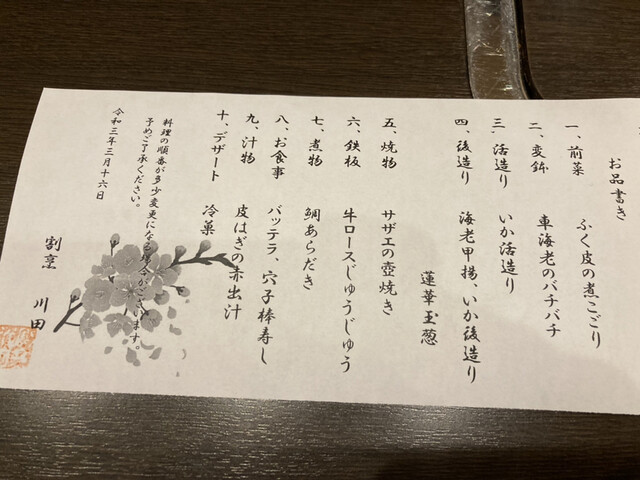 お品書き
一、前菜 ふく皮の煮こごり
二、変鉢 車海老のバチバチ
三、活造り いか活造り
四、後造り 海老甲揚、いか後造り
蓮華玉葱
五、焼物 サザエの壺焼き
六、鉄板 牛ロースじゅうじゅう
七、煮物 鯛あらだき
八、お食事 バッテラ、穴子棒寿し
九、汁物 皮はぎの赤出汁
十、デザート 冷菓
料理の順番が多少変更になる場合がございます。
予めご了承ください。
令和三年三月十六日
割烹 川田